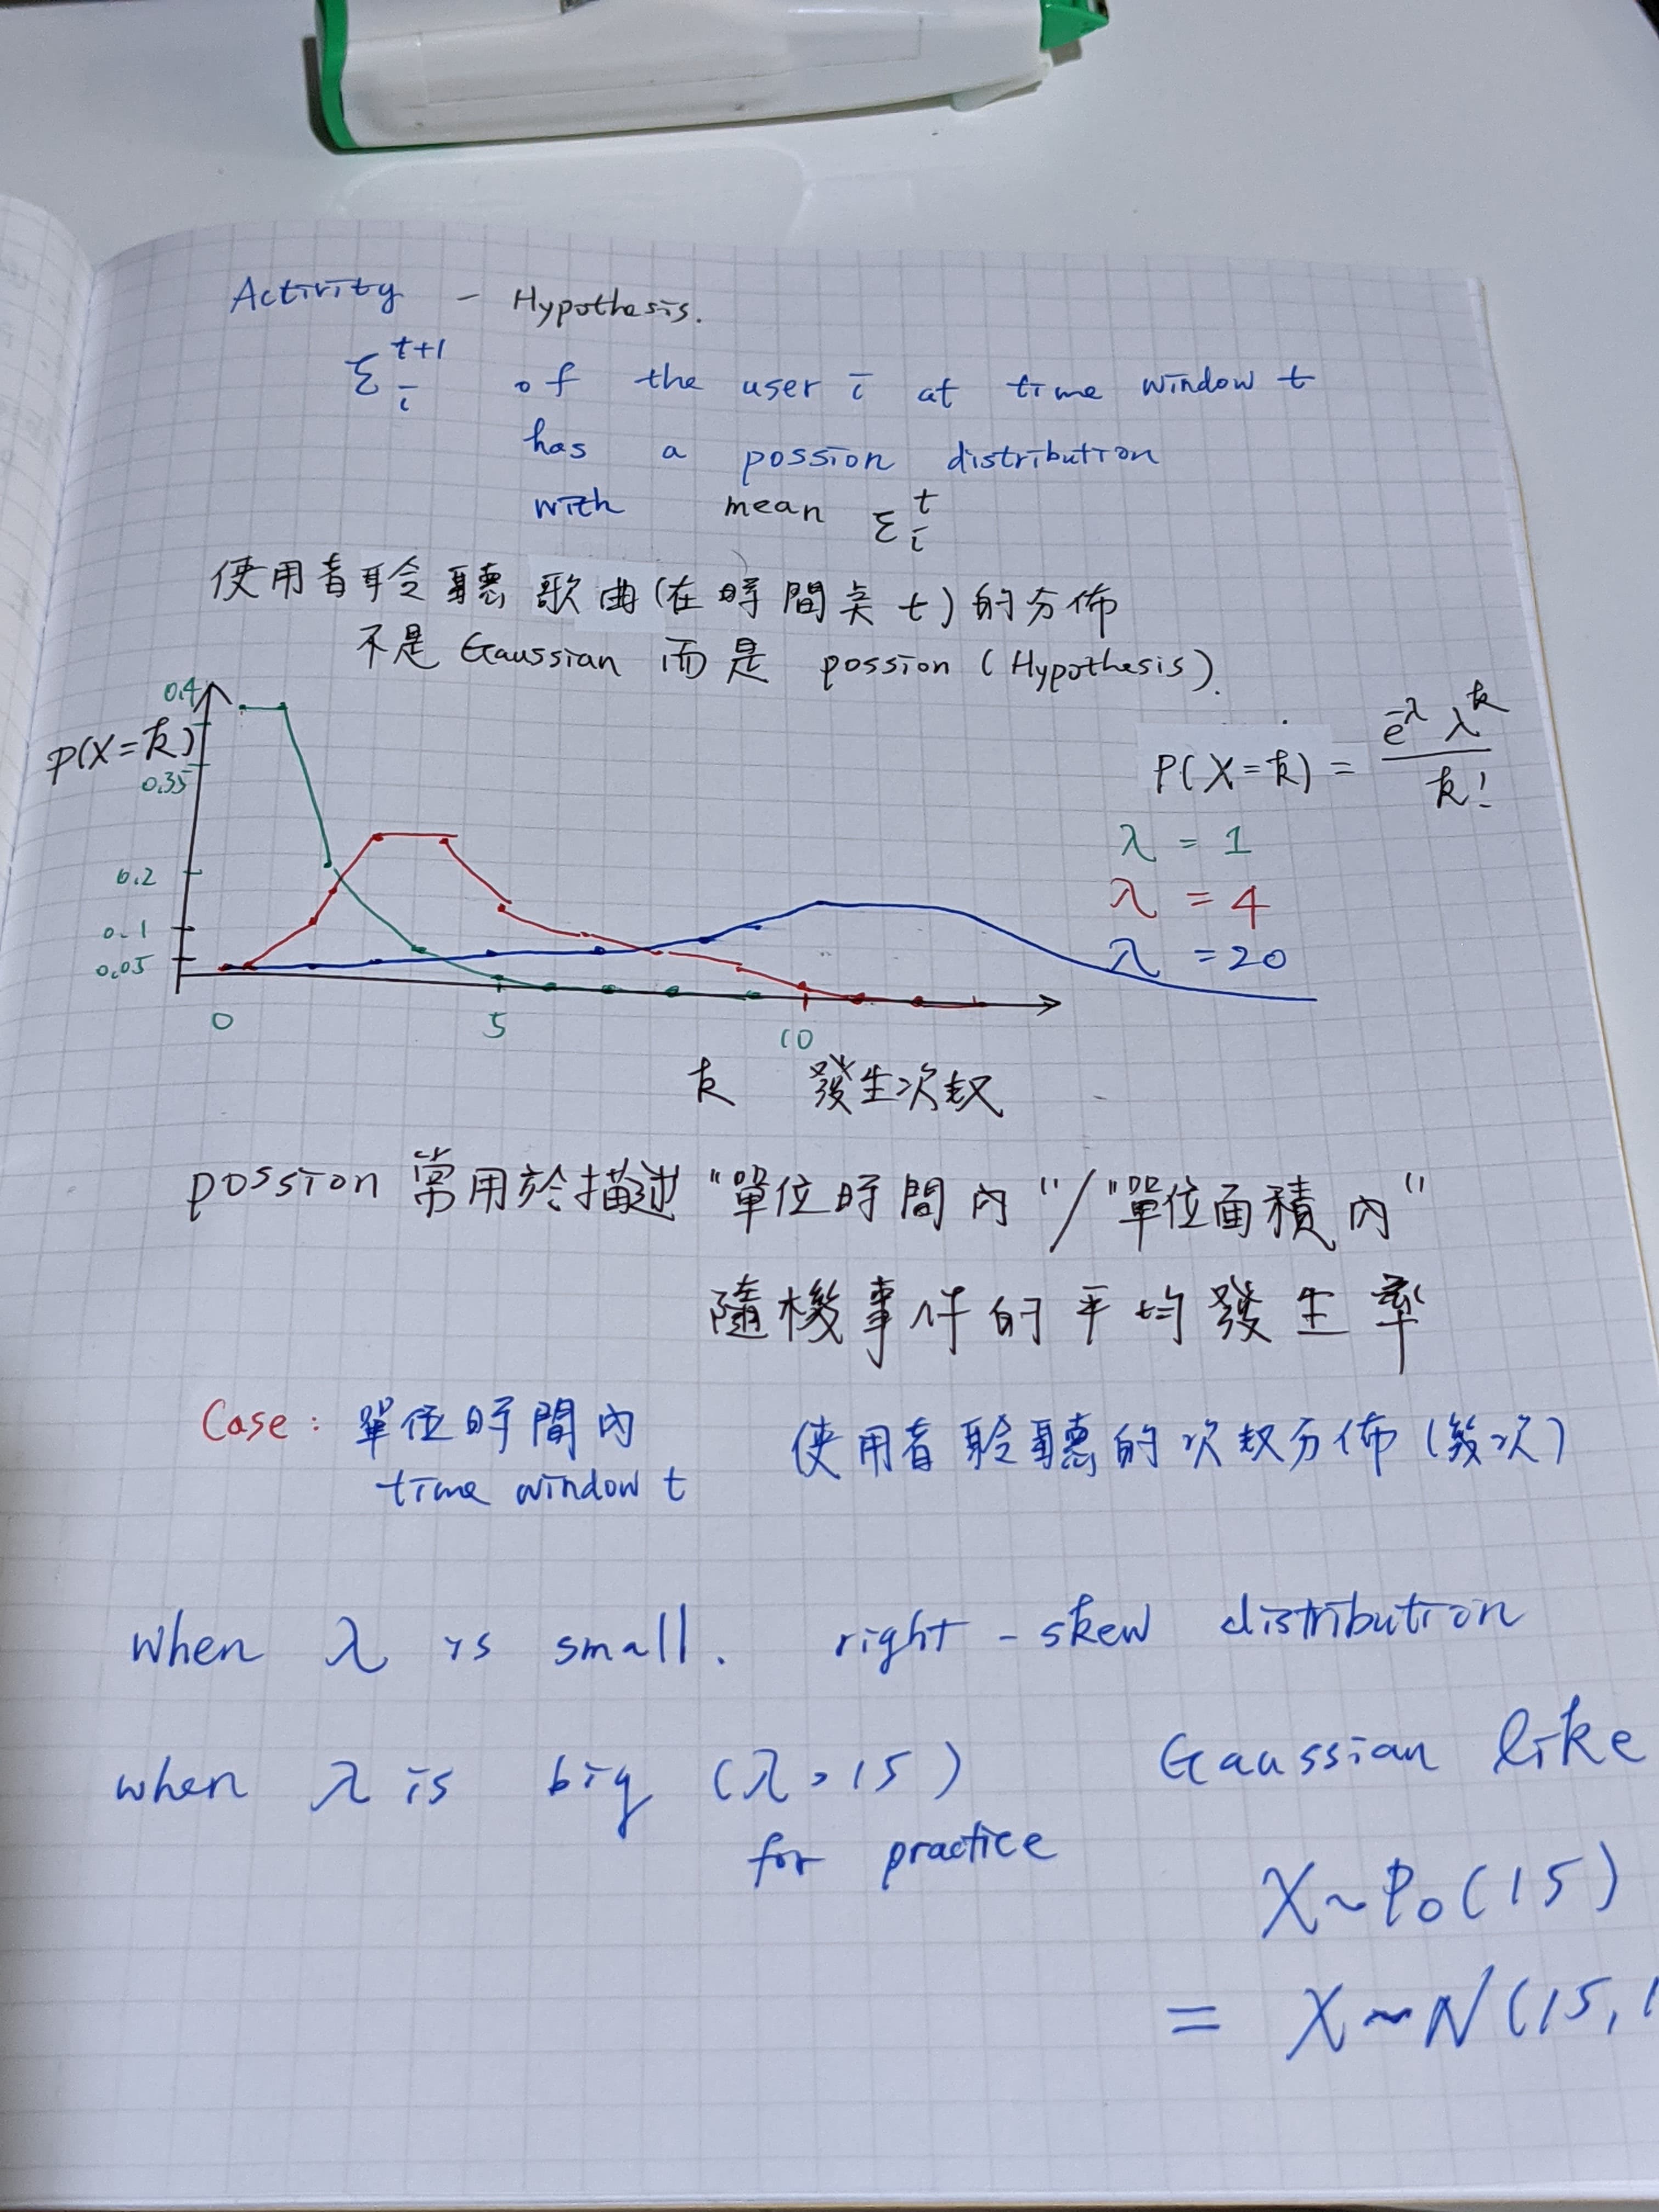 Activity - Hypothesis.
Σᵢᵗ⁺¹ of the user i at time window t
has a possion distribution
with mean Σᵢᵗ
使用者聆聽歌曲(在時間点 t)的分佈
不是 Gaussian 而是 possion (Hypothesis).
0.4
P(X=k)
0.35
0.2
0.1
0.05
0 5 10
k 發生次数
P(X=k) = e^-λ λ^k / k!
λ = 1
λ = 4
λ = 20
possion 常用於描述 "單位時間內"/"單位面積內"
隨機事件的平均發生率
Case: 單位時間內 使用者聆聽的次数分佈(幾次)
time window t
when λ is small. right - skew distribution
when λ is big (λ>15) Gaussian like
for practice
X~Po(15)
= X~N(15,1